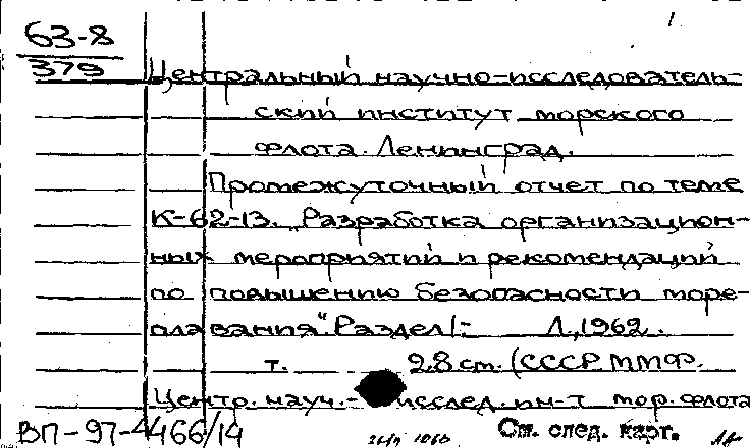 1.
63-8
379
Центральный научно-исследователь-
ский институт морского
флота. Ленинград.
Промежуточный отчет по теме
К-62-13. "Разработка организацион-
ных мероприятий и рекомендаций
по повышению безопасности море-
плавания". Раздел 1-
Л., 1962.
т. 28 см. (СССР. ММФ.
Центр. науч.- исслед. ин-т мор. флота
ВП-97-4466/14
См. след. карт.